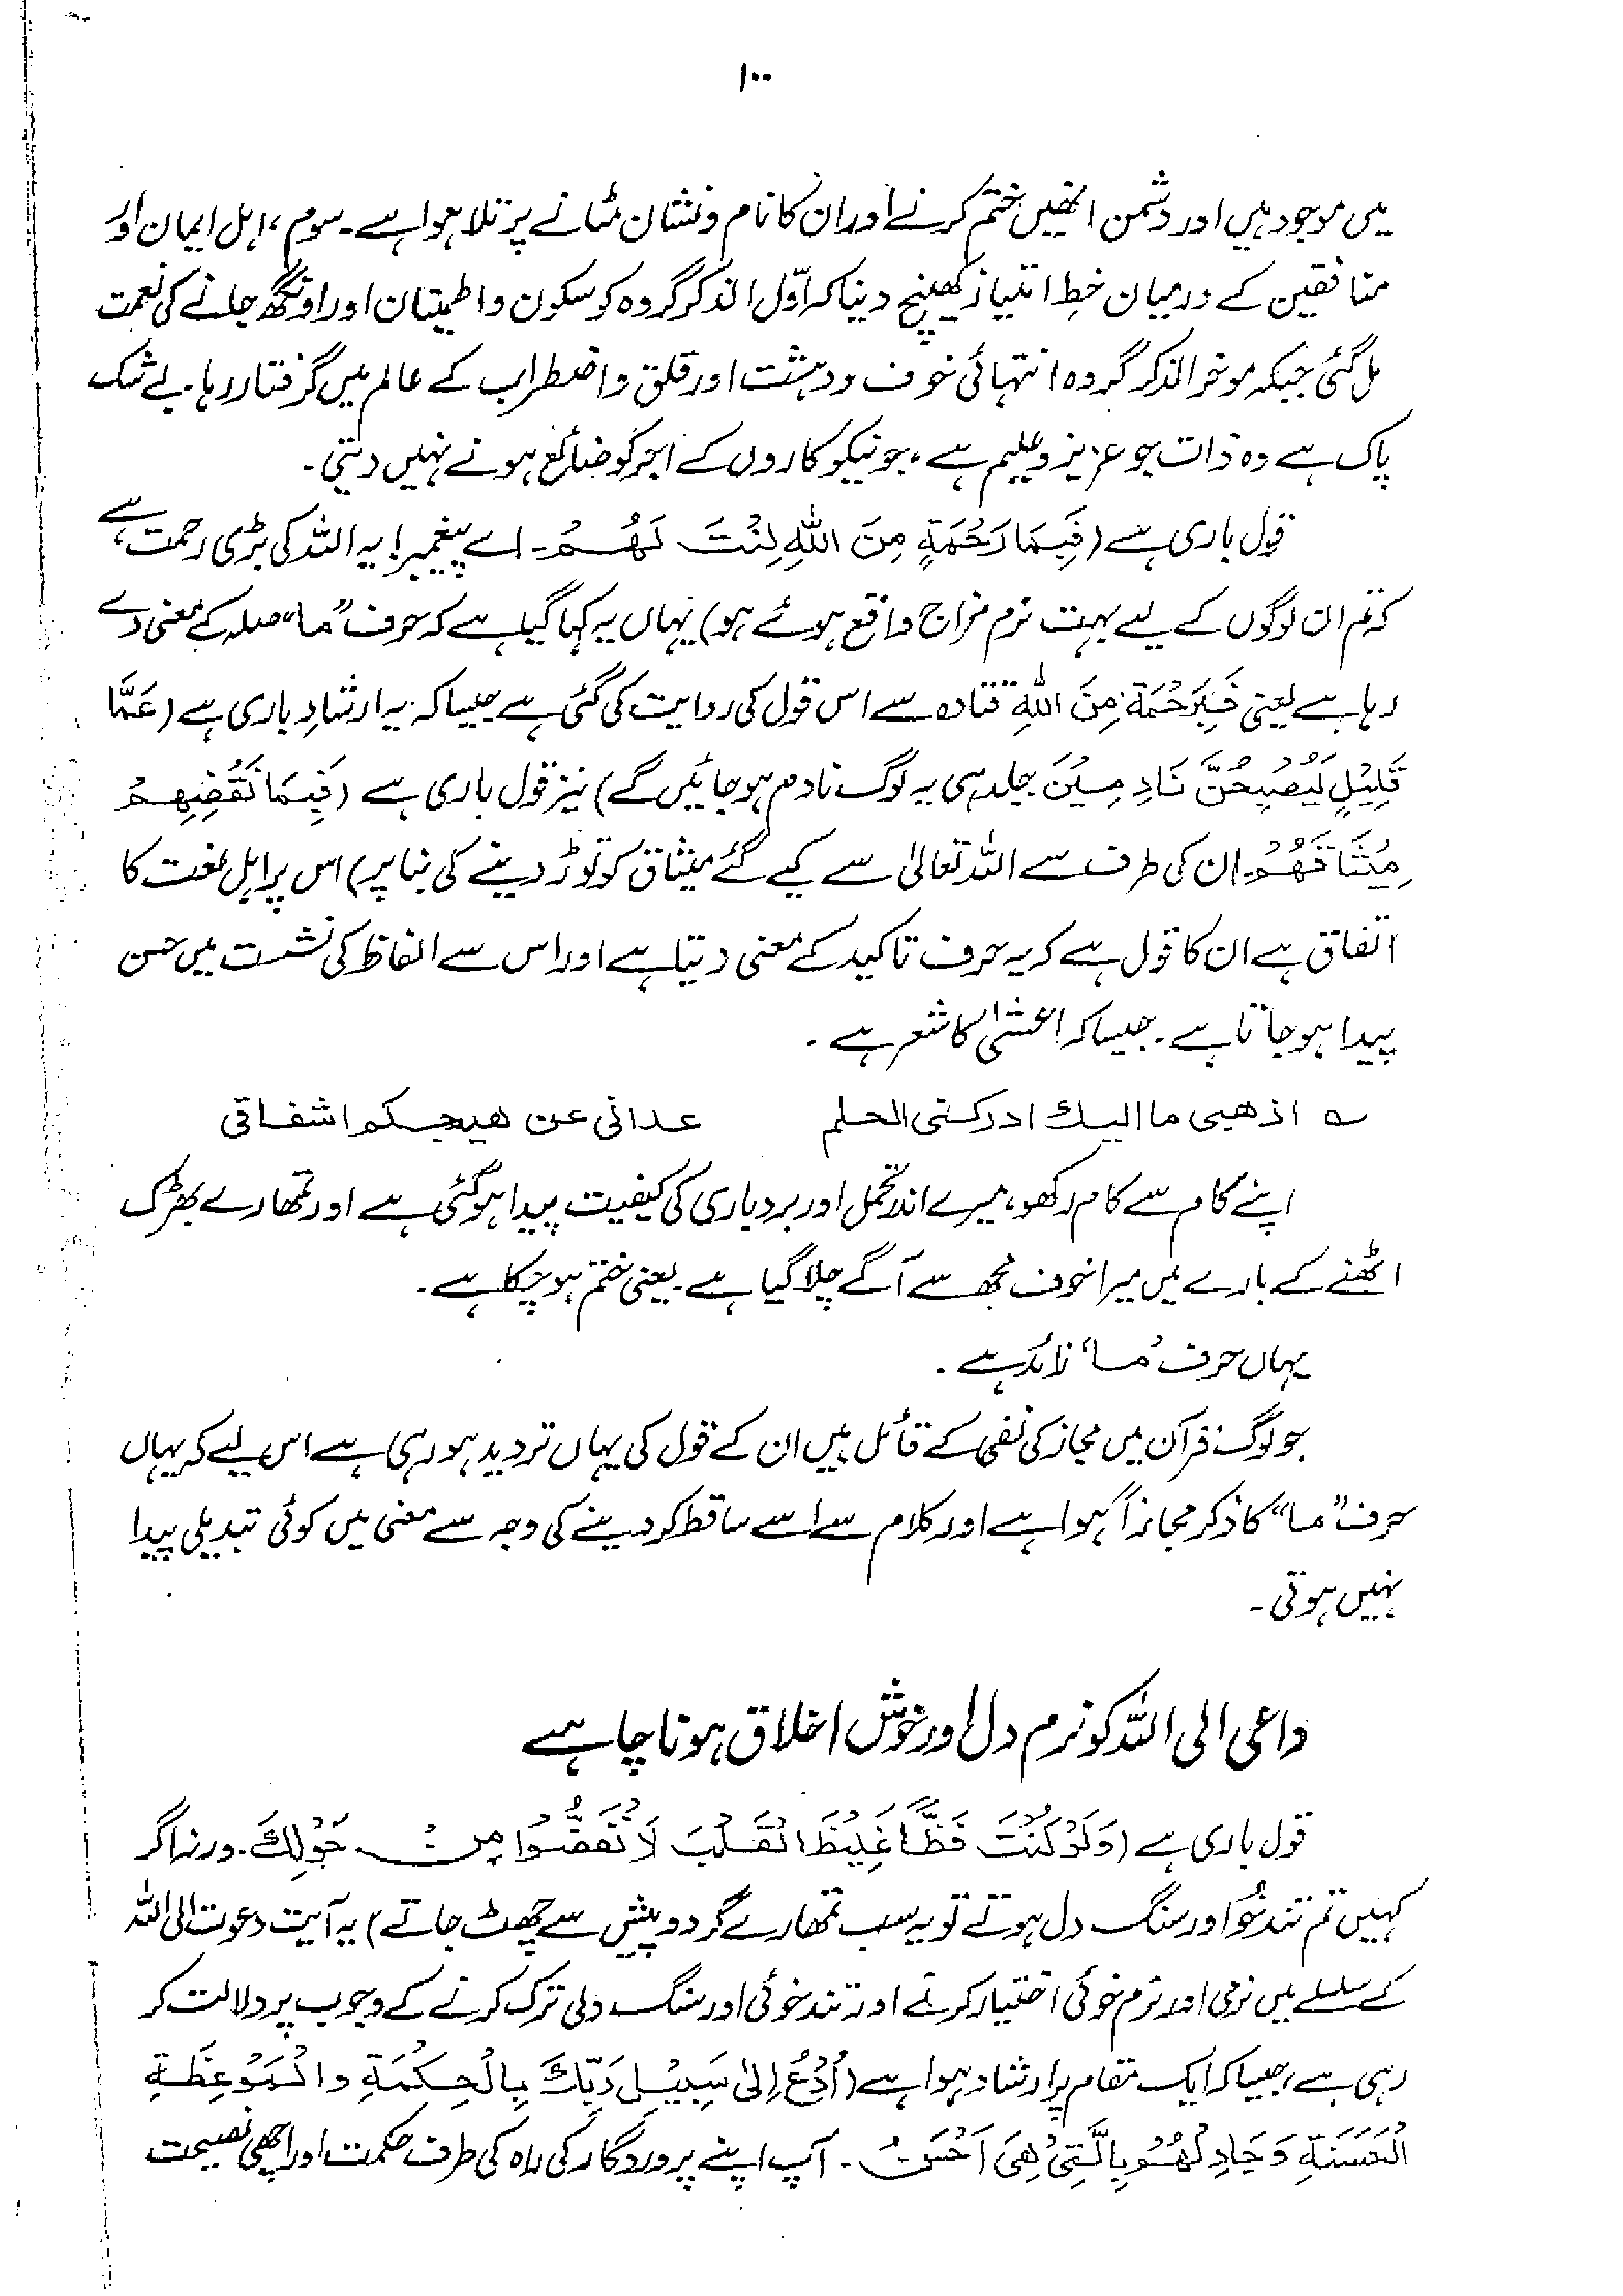 ۱۰۰
میں موجود ہیں اور دشمن انھیں ختم کرنے اور ان کا نام و نشان مٹانے پر تلا ہوا ہے۔ سوم، اہل ایمان اور
منافقین کے درمیان خطِ امتیاز کھینچ دینا کہ اوّل الذکر گروہ کو سکون و اطمینان اور اونگھ جانے کی نعمت
مل گئی جبکہ موخر الذکر گروہ انتہائی خوف و دہشت اور قلق و اضطراب کے عالم میں گرفتار رہا۔ بے شک
پاک ہے وہ ذات جو عزیز و علیم ہے، جو نیکو کاروں کے اجر کو ضائع ہونے نہیں دیتی۔
قول باری ہے (فَبِمَا رَحْمَةٍ مِنَ اللهِ لِنْتَ لَهُمْ۔ اے پیغمبر! یہ اللہ کی بڑی رحمت ہے
کہ تم ان لوگوں کے لیے بہت نرم مزاج واقع ہوئے ہو) یہاں یہ کہا گیا ہے کہ حرف "ما" صلہ کے معنی دے
رہا ہے یعنی فَبِرَحْمَةٍ مِنَ اللهِ قتادہ سے اس قول کی روایت کی گئی ہے جیسا کہ یہ ارشادِ باری ہے (عَمَّا
قَلِيْلٍ لَيُصْبِحُنَّ نَادِمِيْنَ جلد ہی یہ لوگ نادم ہو جائیں گے) نیز قول باری ہے (فَبِمَا نَقْضِهِمْ
مِيْثَاقَهُمْ۔ ان کی طرف سے اللہ تعالیٰ سے کیے گئے میثاق کو توڑ دینے کی بنا پر) اس پر اہل لغت کا
اتفاق ہے ان کا قول ہے کہ یہ حرف تاکید کے معنی دیتا ہے اور اس سے الفاظ کی نشست میں حسن
پیدا ہو جاتا ہے۔ جیسا کہ اعشیٰ کا شعر ہے۔
؎ اذهبى ما اليك ادركنى الحلم عدانى عن هيجكم اشفاقى
اپنے کام سے کام رکھو، میرے اندر تحمل اور بردباری کی کیفیت پیدا ہو گئی ہے اور تمھارے بھڑک
اٹھنے کے بارے میں میرا خوف مجھ سے آگے چلا گیا ہے۔ یعنی ختم ہو چکا ہے۔
یہاں حرف 'ما' زائد ہے۔
جو لوگ قرآن میں مجاز کی نفی کے قائل ہیں ان کے قول کی یہاں تردید ہو رہی ہے اس لیے کہ یہاں
حرف "ما" کا ذکر مجازاً ہوا ہے اور کلام سے اسے ساقط کر دینے کی وجہ سے معنی میں کوئی تبدیلی پیدا
نہیں ہوتی۔
داعی الی اللہ کو نرم دل اور خوش اخلاق ہونا چاہیے
قول باری ہے (وَلَوْ كُنْتَ فَظًّا غَلِيْظَ الْقَلْبِ لَا نْفَضُّوْا مِنْ حَوْلِكَ۔ ورنہ اگر
کہیں تم تند خُو اور سنگ دل ہوتے تو یہ سب تمھارے گرد و پیش سے چھٹ جاتے) یہ آیت دعوت الی اللہ
کے سلسلے میں نرمی اور نرم خوئی اختیار کرنے اور تند خوئی اور سنگ دلی ترک کرنے کے وجوب پر دلالت کر
رہی ہے، جیسا کہ ایک مقام پر ارشاد ہوا ہے (اُدْعُ اِلٰى سَبِيْلِ رَبِّكَ بِالْحِكْمَةِ والْمَوْعِظَةِ
الْحَسَنَةِ وَجَادِلْهُمْ بِالَّتِىْ هِىَ اَحْسَنُ۔ آپ اپنے پروردگار کی راہ کی طرف حکمت اور اچھی نصیحت